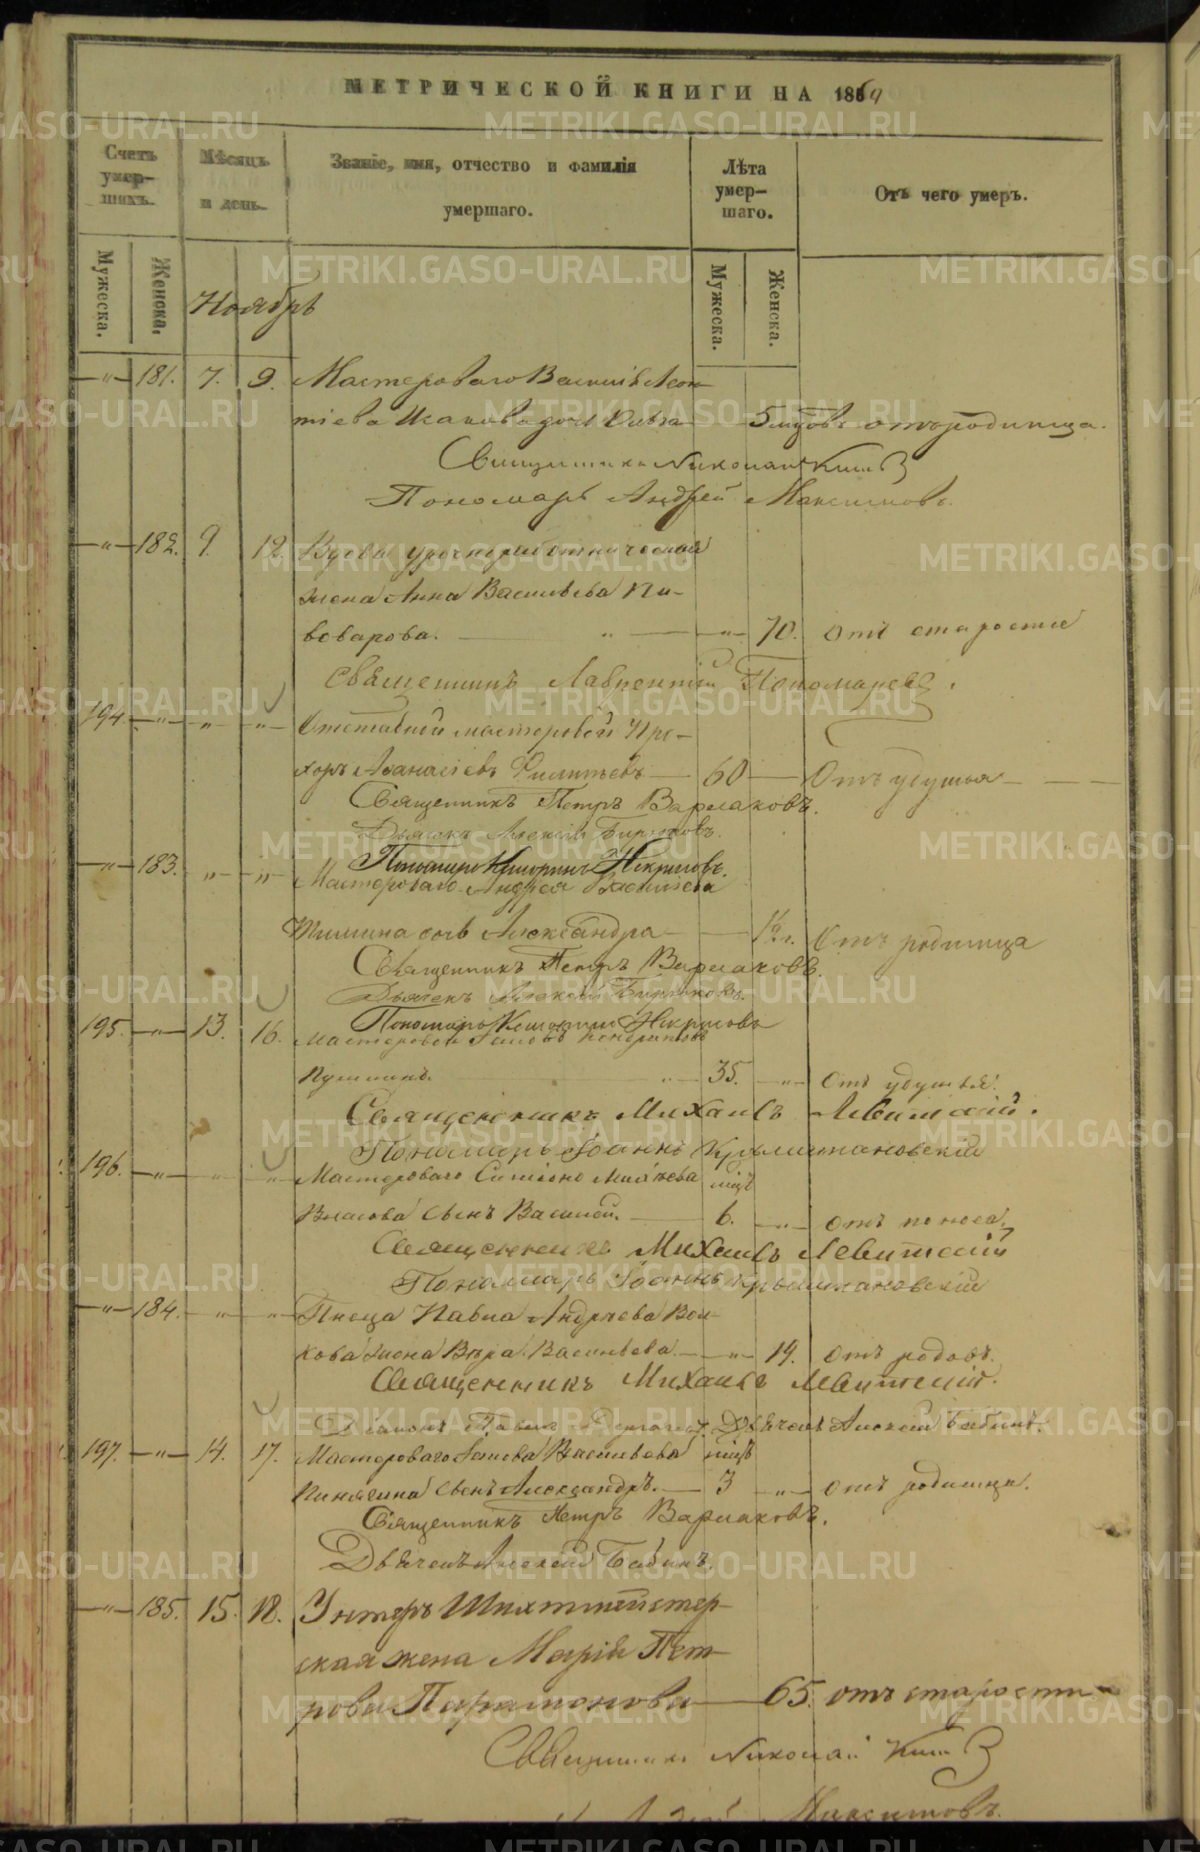 МЕТРИЧЕСКОЙ КНИГИ НА 1869
Счетъ умерших. Мѣсяцъ и день. Званіе, имя, отчество и фамилія умершаго. Лѣта умершаго. Отъ чего умеръ.
Мужеска. Женска. Мужеска. Женска.
Ноябрь
—"— 181. 7. 9. Мастероваго Василія Леон-
тіева Исакова дочь Ольга 5 мцовъ отъ родимца.
Священникъ Николай
Пономарь Андрей Максимовъ.
—"— 182. 9. 12. Вдова урочнорабочическая
жена Анна Васильева Пи-
воварова. — " — —"— 70. отъ старости
Священникъ Лаврентій Пономаревъ.
194. —"— " —"— Отставной мастеровой Про-
хоръ Аѳанасіевъ Филипьевъ — 60 — Отъ удушья —
Священникъ Петръ Варлаковъ.
Дьячекъ Алексій Бирюковъ.
—"— 183. " " Пономарь Некрасовъ.
Мастероваго Андрея Васильева
дочь Александра 1/2 г. Отъ родимца
Священникъ Петръ Варлаковъ.
Дьячекъ Алексій Бирюковъ.
Пономарь Некрасовъ
195. —"— 13. 16. Мастеровой
35. —"— отъ удушья.
Священникъ Михаилъ Левитскій.
Пономарь Іоаннъ Крылишановскій
196. —"— " " Мастероваго Симеона Михѣева мцъ
Власова сынъ Василій. — 6. —"— отъ поноса.
Священникъ Михаилъ Левитскій
Пономарь Іоаннъ Крылишановскій
—"— 184. " —"— Писца Павла Андреева Вол-
кова жена Вѣра Васильева. — —"— 19. отъ родовъ.
Священникъ Михаилъ Левитскій.
Діаконъ Павелъ Дьячекъ Алексѣй Бабинъ.
197. —"— 14. 17. Мастероваго Васильева мцъ
сынъ Александръ. — 3 —"— отъ родимца.
Священникъ Петръ Варлаковъ.
Дьячекъ Алексѣй Бабинъ.
—"— 185. 15. 18. Унтеръ Шихтмейстер-
ская жена Марія Пет-
рова Парамонова — 65. отъ старости
Священникъ Николай
Максимовъ.
METRIKI.GASO-URAL.RU